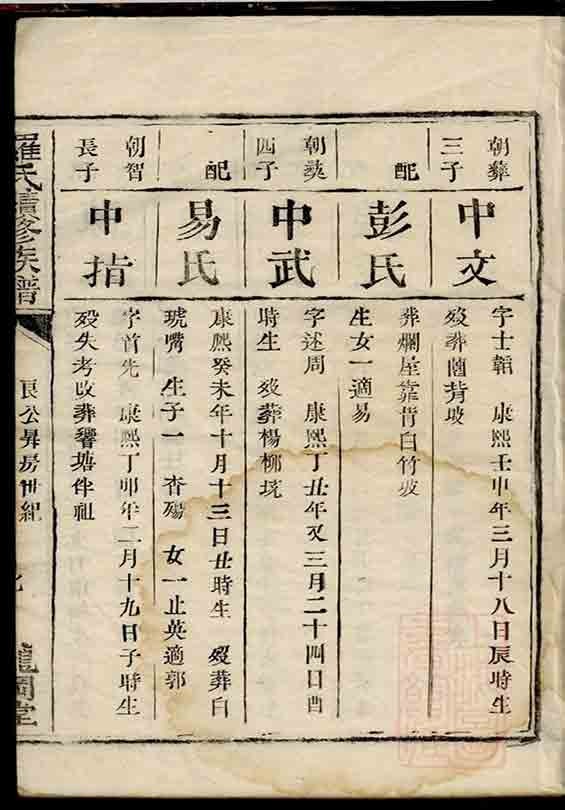 朝彝
三子
中文
字士韜 康熙壬申年三月十八日辰時生
歿葬茴背坡
配
彭氏
葬爛屋靠背白竹坡
生女一適易
朝彛
四子
中武
字述周 康熙丁丑年又三月二十四日酉
時生 歿葬楊柳垅
配
易氏
康熙癸未年十月十三日丑時生 歿葬白
琥嘴 生子一 杳殤 女一止英適郭
朝智
長子
中指
字首先 康熙丁卯年二月十九日子時生
歿失考改葬響塘伴祖
羅氏續修族譜
良公昇房世紀
龍岡堂